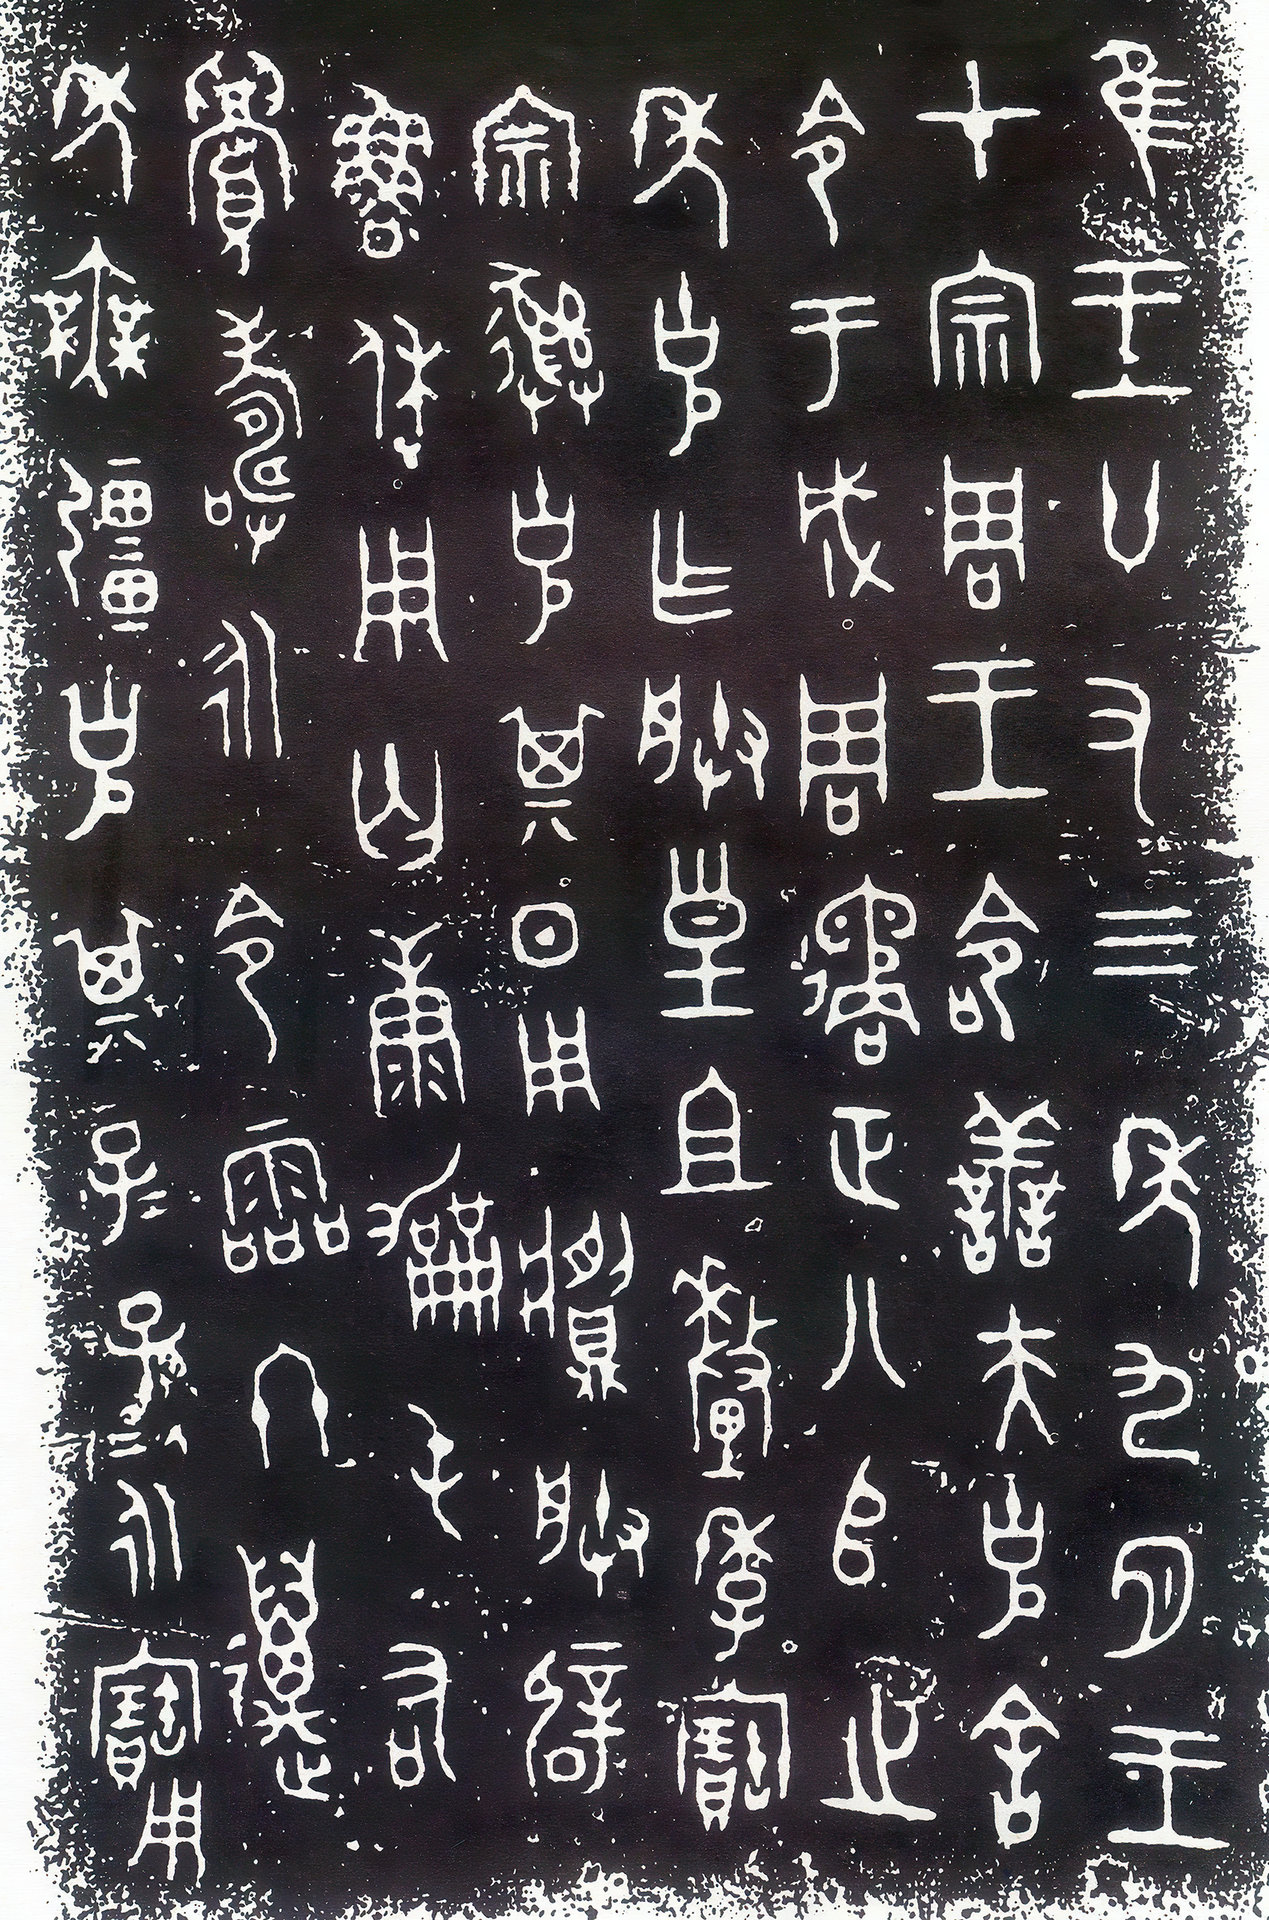 隹王廿又三年九月王
才宗周王命善夫克舍
令于成周遹正八𠂤之
年克乍朕皇且釐季寶
宗彝克其日用䵼朕辟
魯休用匄康勵屯右
眉壽永令霝冬邁
年無疆克其子=孫=永寶用